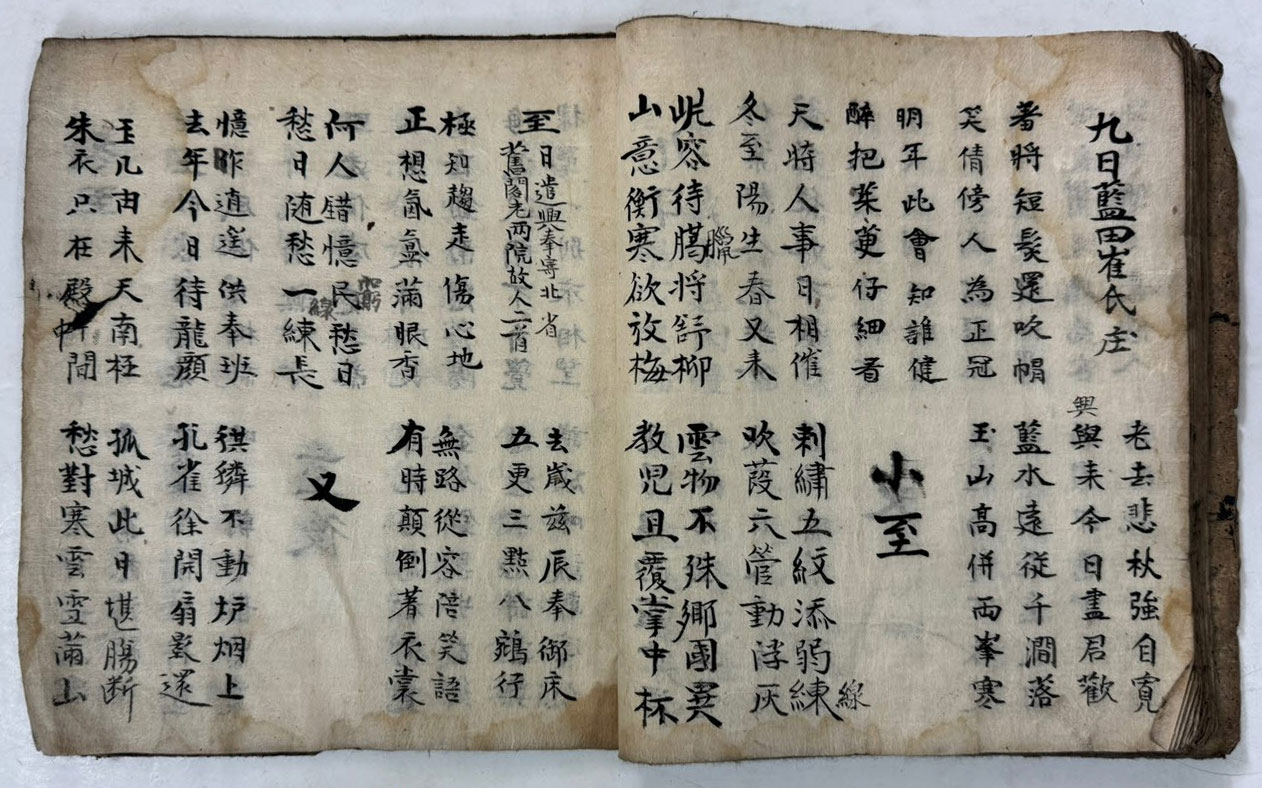 九日藍田崔氏庄
老去悲秋強自寬
興
與来今日盡君歡
羞將短髮還吹帽
笑倩傍人為正冠
藍水遠從千澗落
玉山高併兩峯寒
明年此會知誰健
醉把茱萸仔細看
小至
天時人事日相催
冬至陽生春又来
刺繡五紋添弱練
線
吹葭六管動浮灰
容待將舒柳
臘
山意衝寒欲放梅
雲物不殊鄉國異
教児且覆掌中杯
至日遣興奉寄北省
舊閣老两院故人二首
去歲兹辰奉御床
五更三點入鵷行
極知趨走傷心地
正想氤氳滿眼香
無路從容陪笑語
有時顛倒著衣裳
何人錯憶民愁日
窮
愁日随愁一練長
線
又
憶昨逍遥供奉班
去年今日待龍顔
不動炉烟上
孔雀徐開扇影還
玉几由来天南極
朱衣只在殿中間
孤城此日堪腸断
愁對寒雲雪滿山